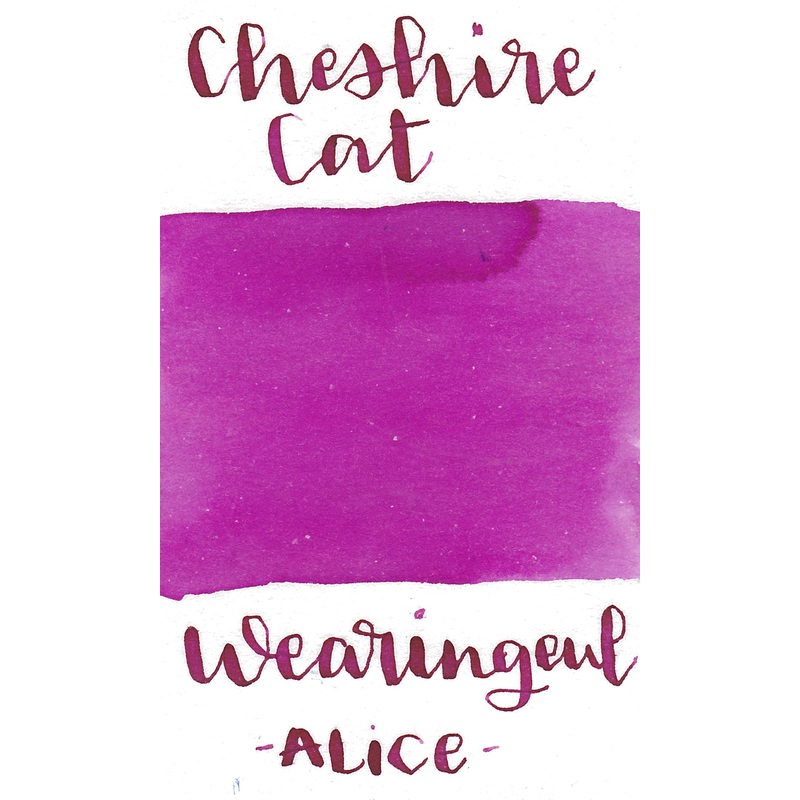 Cheshire
Cat
Wearingeul
- ALiCE -